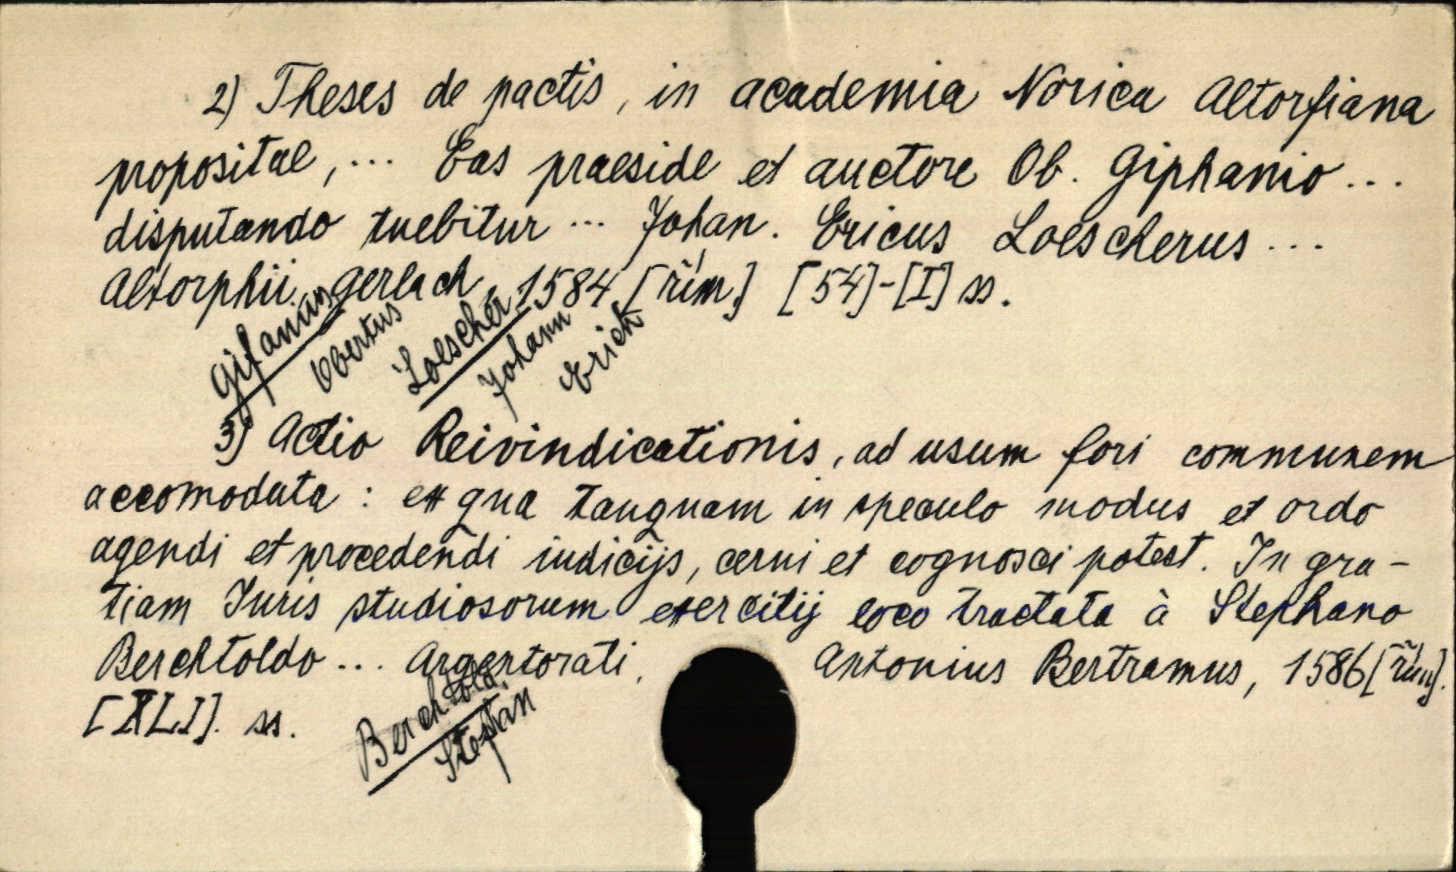 2) Theses de pactis, in academia Norica Altorfiana
propositae, ... Eas praeside et auctore Ob. Giphanio ...
disputando tuebitur ... Johan. Ericus Loescherus ...
Altorphii. Gerlach, 1584 [rím.] [54]-[I] ss.
Gifanius
Obertus
Loescher
Johann
Erich
3) Actio Reivindicationis, ad usum fori communem
accomodata : ex qua tanquam in speculo modus et ordo
agendi et procedendi iudicijs, cerni et cognosci potest. In gra-
tiam Iuris studiosorum exercitij loco tractata à Stephano
Berchtoldo ... Argentorati, Antonius Bertramus, 1586 [rím].
[XLI]. ss.
Berchtold
Stephan